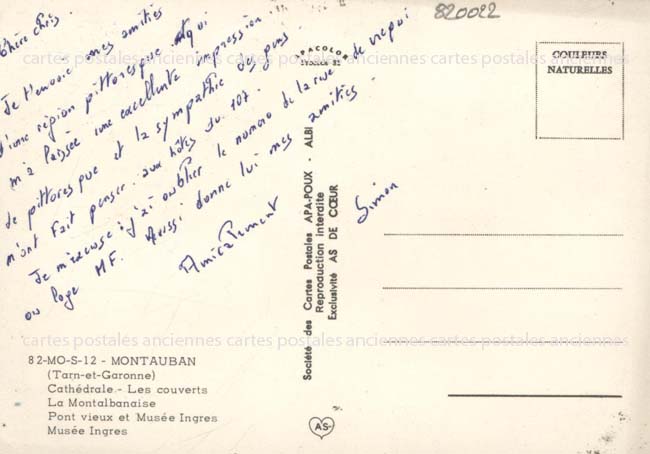 Chère Chris,
Je t'envoie mes amitiés
d'une région pittoresque et qui
m'a laissée une excellente impression
de pittoresque et la sympathie des gens
m'ont fait penser aux hôtes du 107.
Je m'excuse : j'ai oublier le numéro de la rue de
où loge MF. Aussi donne lui mes amitiés.
Amicalement
Simon
820022
APACOLOR
COULEURS
NATURELLES
Société des Cartes Postales APA-POUX - ALBI
Reproduction interdite
Exclusivité AS DE CŒUR
cartes postales anciennes cartes postales anciennes cartes postales anciennes
cartes postales anciennes cartes postales anciennes cartes postales anciennes
82-MO-S-12 - MONTAUBAN
(Tarn-et-Garonne)
Cathédrale - Les couverts
La Montalbanaise
Pont vieux et Musée Ingres
Musée Ingres
AS